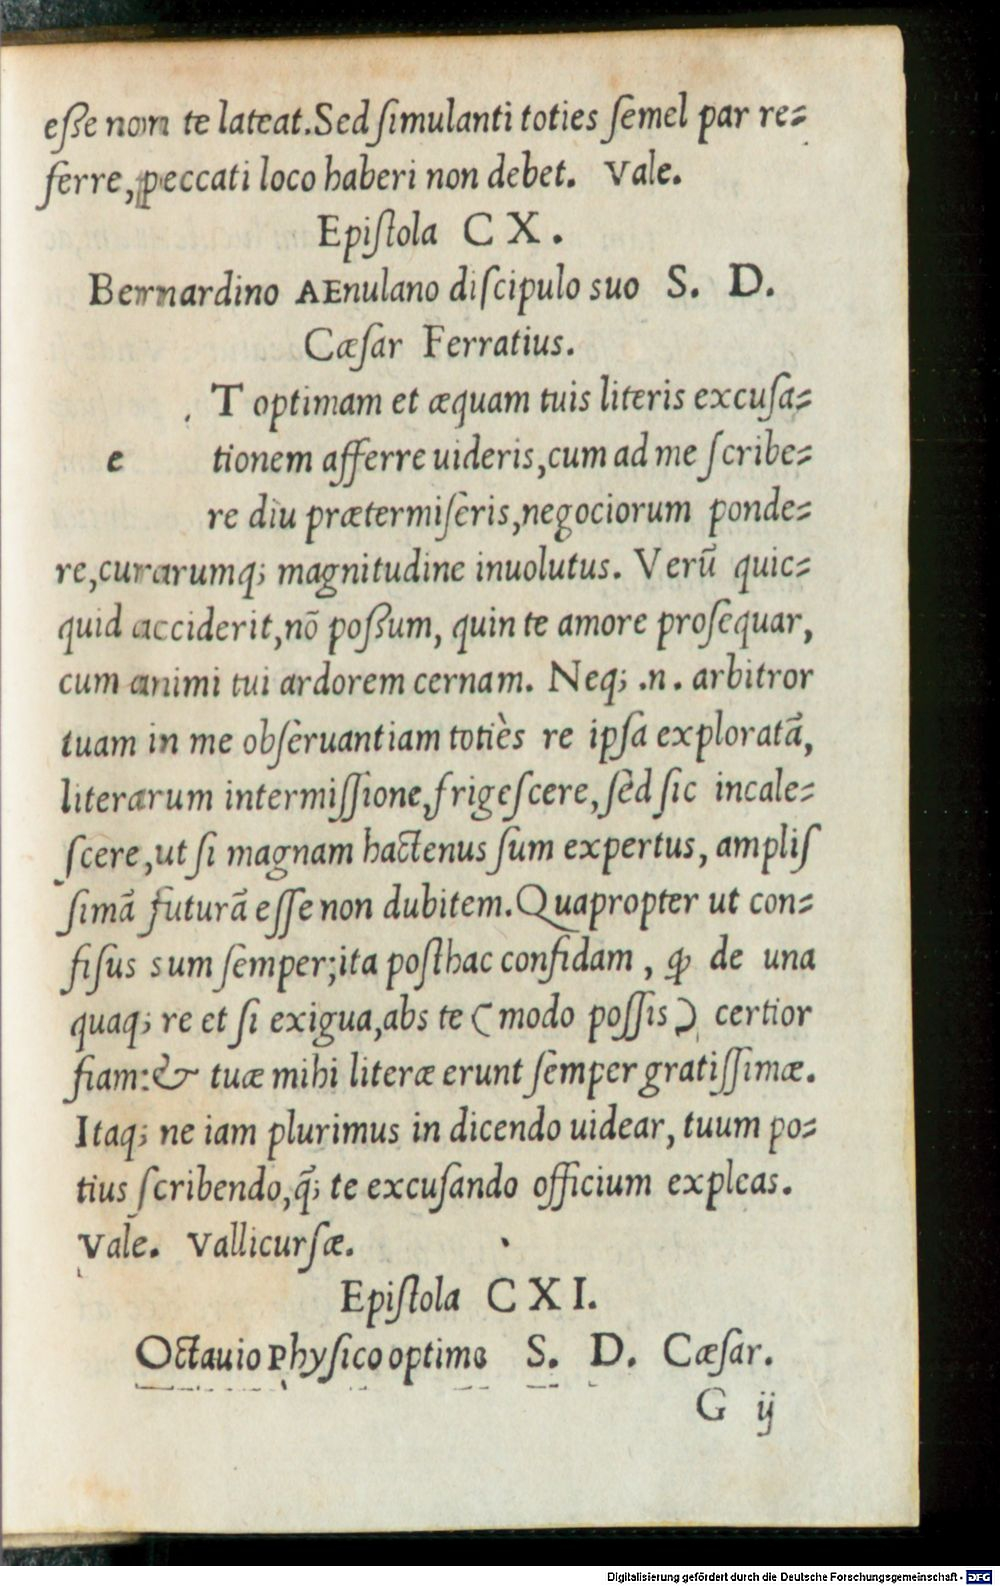 eſſe non te lateat. Sed ſimulanti toties ſemel par re⸗
ferre, peccati loco haberi non debet. Vale.
Epiſtola C X.
Bernardino AEnulano diſcipulo suo S. D.
Cæſar Ferratius.
T optimam et æquam tuis literis excuſa⸗
e tionem afferre uideris, cum ad me ſcribe⸗
re diu prætermiſeris, negociorum ponde⸗
re, curarumq; magnitudine inuolutus. Verũ quic⸗
quid acciderit, nõ poßum, quin te amore proſequar,
cum animi tui ardorem cernam. Neq; .n. arbitror
tuam in me obſeruantiam totiès re ipſa exploratã,
literarum intermiſſione, frigeſcere, ſed ſic incale⸗
ſcere, ut ſi magnam hactenus ſum expertus, ampliſ
ſimã futurã eſſe non dubitem. Quapropter ut con⸗
fiſus sum ſemper; ita poſthac confidam, ꝙ de una
quaq; re et ſi exigua, abs te (modo poſſis) certior
fiam: & tuæ mihi literæ erunt ſemper gratiſſimæ.
Itaq; ne iam plurimus in dicendo uidear, tuum po⸗
tius ſcribendo, q̃; te excuſando officium expleas.
Vale. Vallicurſæ.
Epiſtola C X I.
Octauio Phyſico optimo S. D. Cæſar.
G ij
Digitalisierung gefördert durch die Deutsche Forschungsgemeinschaft - DFG